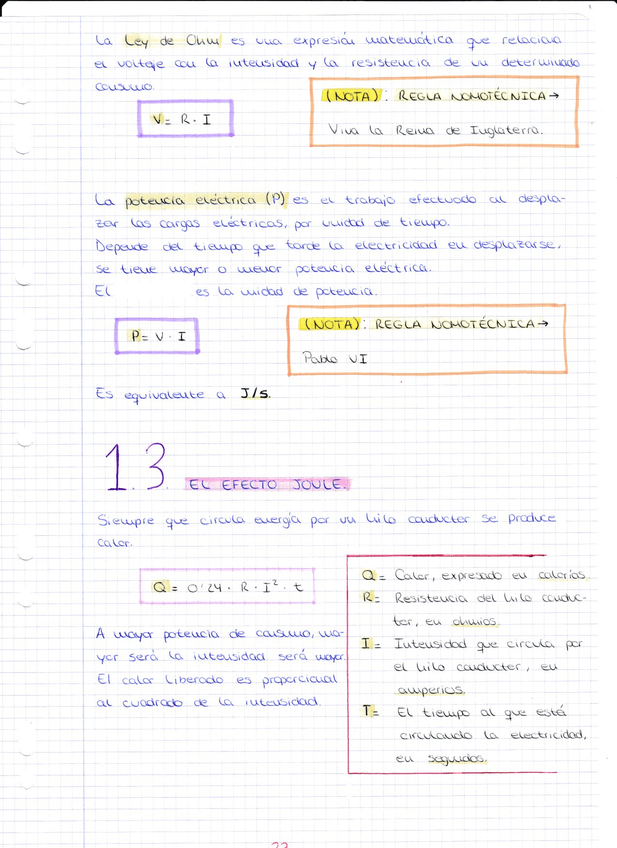 La Ley de Ohm es una expresión matemática que relaciona
el voltaje con la intensidad y la resistencia de un determinado
consumo.
V = R · I
(NOTA): REGLA NOMOTÉCNICA →
Viva la Reina de Inglaterra.
La potencia eléctrica (P) es el trabajo efectuado al despla-
zar las cargas eléctricas, por unidad de tiempo.
Depende del tiempo que tarde la electricidad en desplazarse,
se tiene mayor o menor potencia eléctrica.
El es la unidad de potencia.
P = V · I
(NOTA): REGLA NOMOTÉCNICA →
Pablo VI
Es equivalente a J/s.
1.3. EL EFECTO JOULE.
Siempre que circula energía por un hilo conductor se produce
calor.
Q = 0'24 · R · I² · t
A mayor potencia de consumo, ma-
yor será la intensidad será mayor.
El calor liberado es proporcional
al cuadrado de la intensidad.
Q = Calor, expresado en calorías.
R = Resistencia del hilo conduc-
tor, en ohmios.
I = Intensidad que circula por
el hilo conductor, en
amperios.
T = El tiempo al que está
circulando la electricidad,
en segundos.